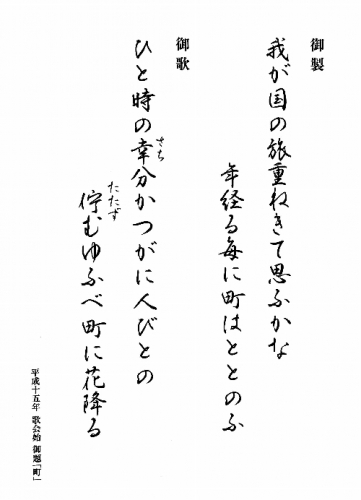 御製
我が国の旅重ねきて思ふかな
年経る毎に町はととのふ
御歌
ひと時の幸分かつがに人びとの
さち
佇むゆふべ町に花降る
たたず
平成十五年 歌会始 御題「町」